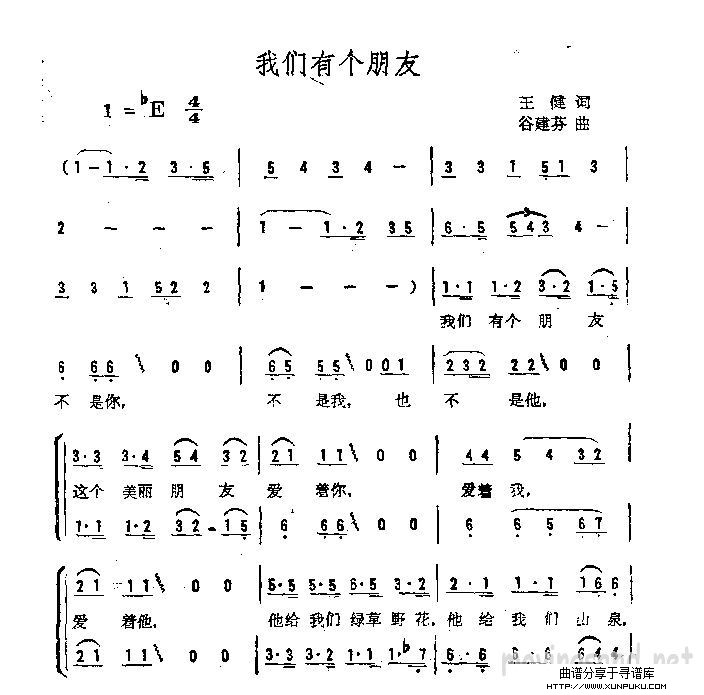 我们有个朋友
1 = ♭E 4/4
王 健 词
谷建芬 曲
(1 — 1·2 3·5 | 5 4 3 4 — | 3 3 1 51 3 |
2 — — — | 1 — 1·2 35 | 6·5 543 4 — |
3 3 1 52 2 | 1 — — — ) | 1·1 1·2 3·2 1·5
我们 有个 朋 友
6 66 0 0 | 65 55 0 001 | 232 22 0 0
不 是你, 不 是我, 也 不 是他,
3·3 3·4 54 32 | 21 11 0 0 | 44 5 4 32
这个 美丽 朋 友 爱 着你, 爱着 我,
1·1 1·2 32 15 | 6 66 0 0 | 6 6 5 67
21 11 0 0 | 5·5 5·5 6·5 3·2 | 2·1 1·1 166
爱 着他, 他给 我们 绿草 野花, 他 给 我 们 山 泉,
21 11 0 0 | 3·3 3·2 1·1 ♭7·7 | 6·6 6·6 644
曲谱分享于寻谱库
WWW.XUNPUKU.COM